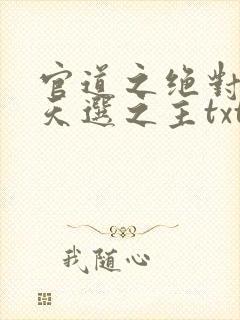 官道之绝對
天選之主txt
我随心